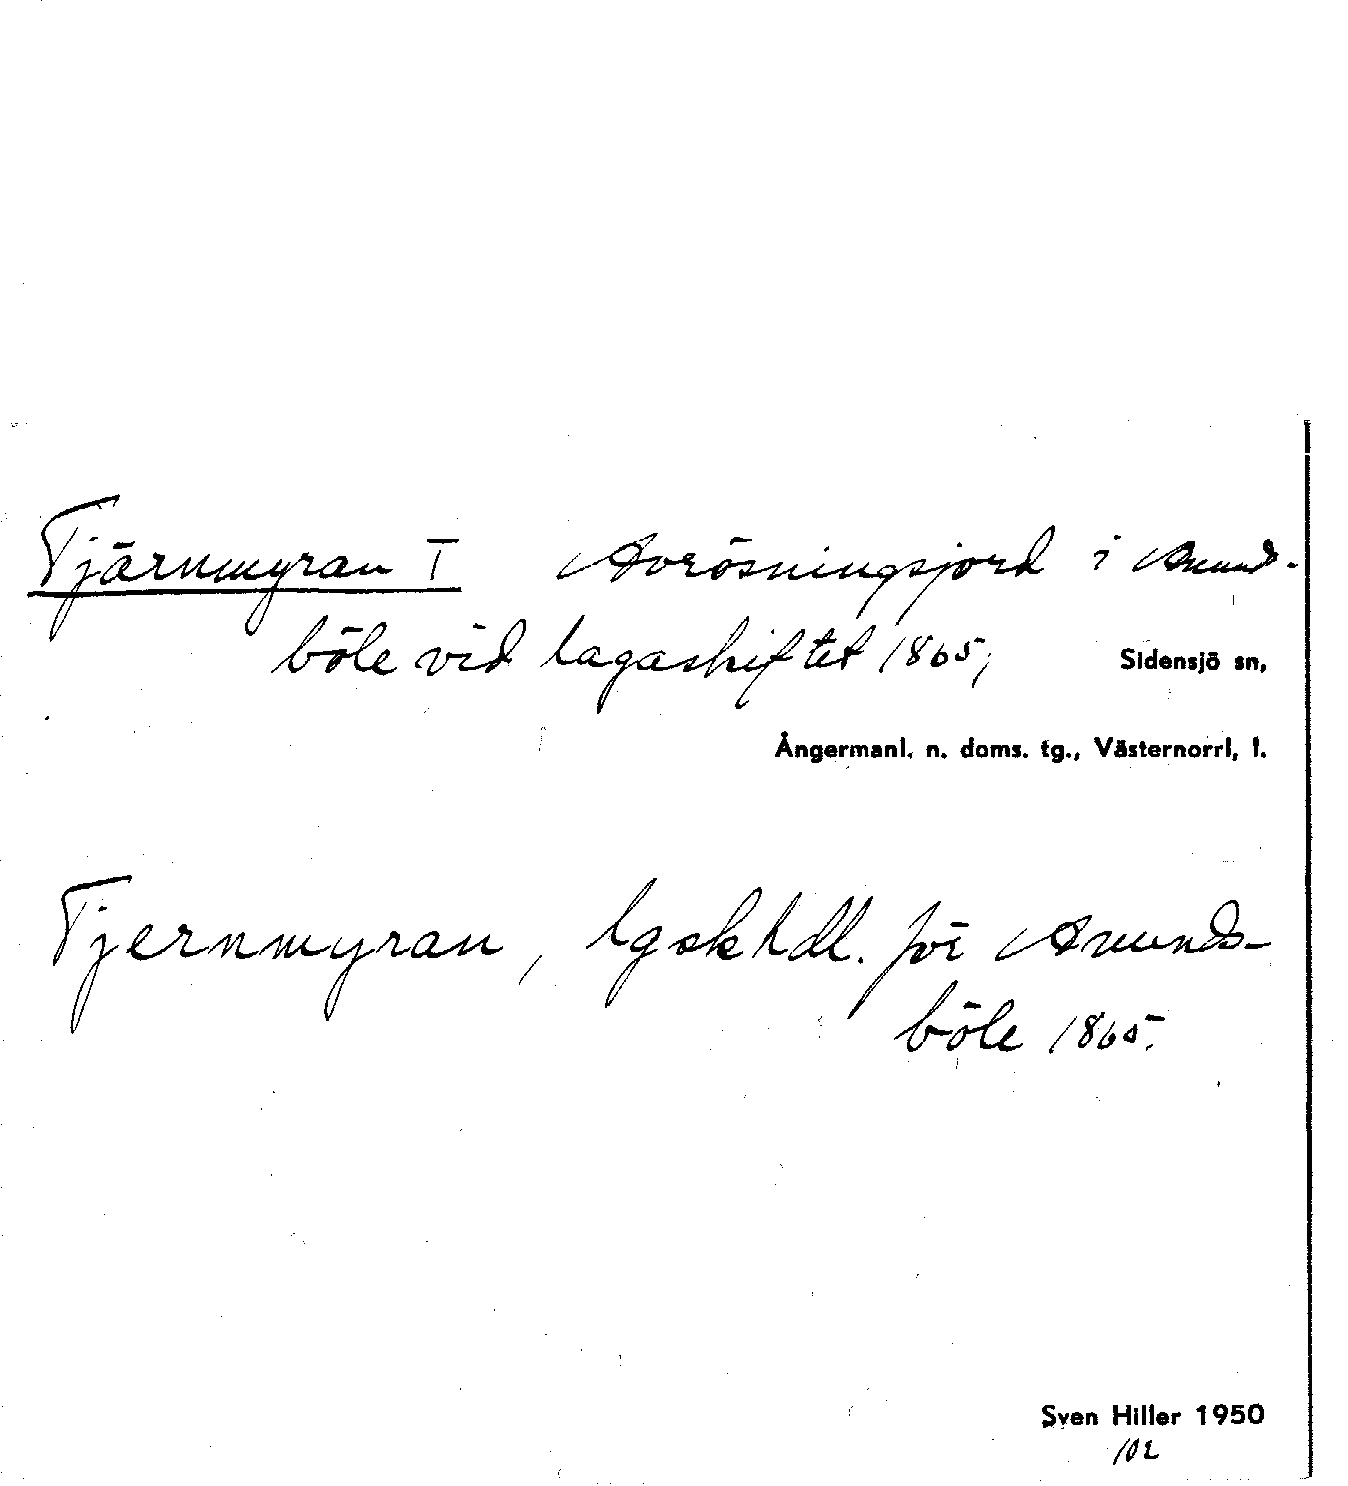 Tjärnmyran I Avrösningsjord i Anund-
böle vid lagaskiftet 1865;
Sidensjö sn,
Ångermanl. n. doms. tg., Västernorrl, l.
Tjernmyran, lgskhdl. för Anunds-
böle 1865.
Sven Hiller 1950
102